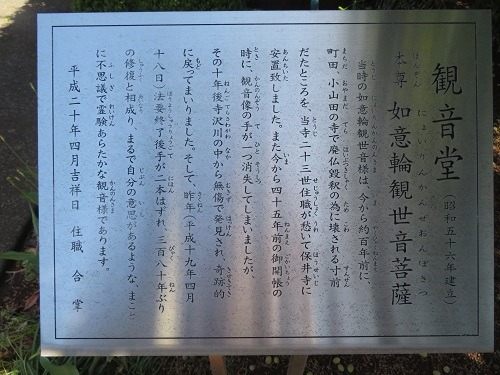 観音堂（昭和五十六年建立）
本尊 如意輪観世音菩薩
当時の如意輪観世音様は、今から約百年前に、
町田 小山田の寺で廃仏毀釈の為に壊される寸前
だたところを、当寺二十三世住職が愁いて保井寺に
安置致しました。また今から四十五年前の御開帳の
時に、観音像の手が一つ消失してしまいましたが、
その十年後寺沢川の中から無傷で発見され、奇跡的
に戻ってまいりました。そして、昨年（平成十九年四月
十八日）法要終了後手が二本はずれ、三百八十年ぶり
の修復と相成り、まるで自分の意思があるような、まこと
に不思議で霊験あらたかな観音様であります。
平成二十年四月吉祥日 住職 合掌